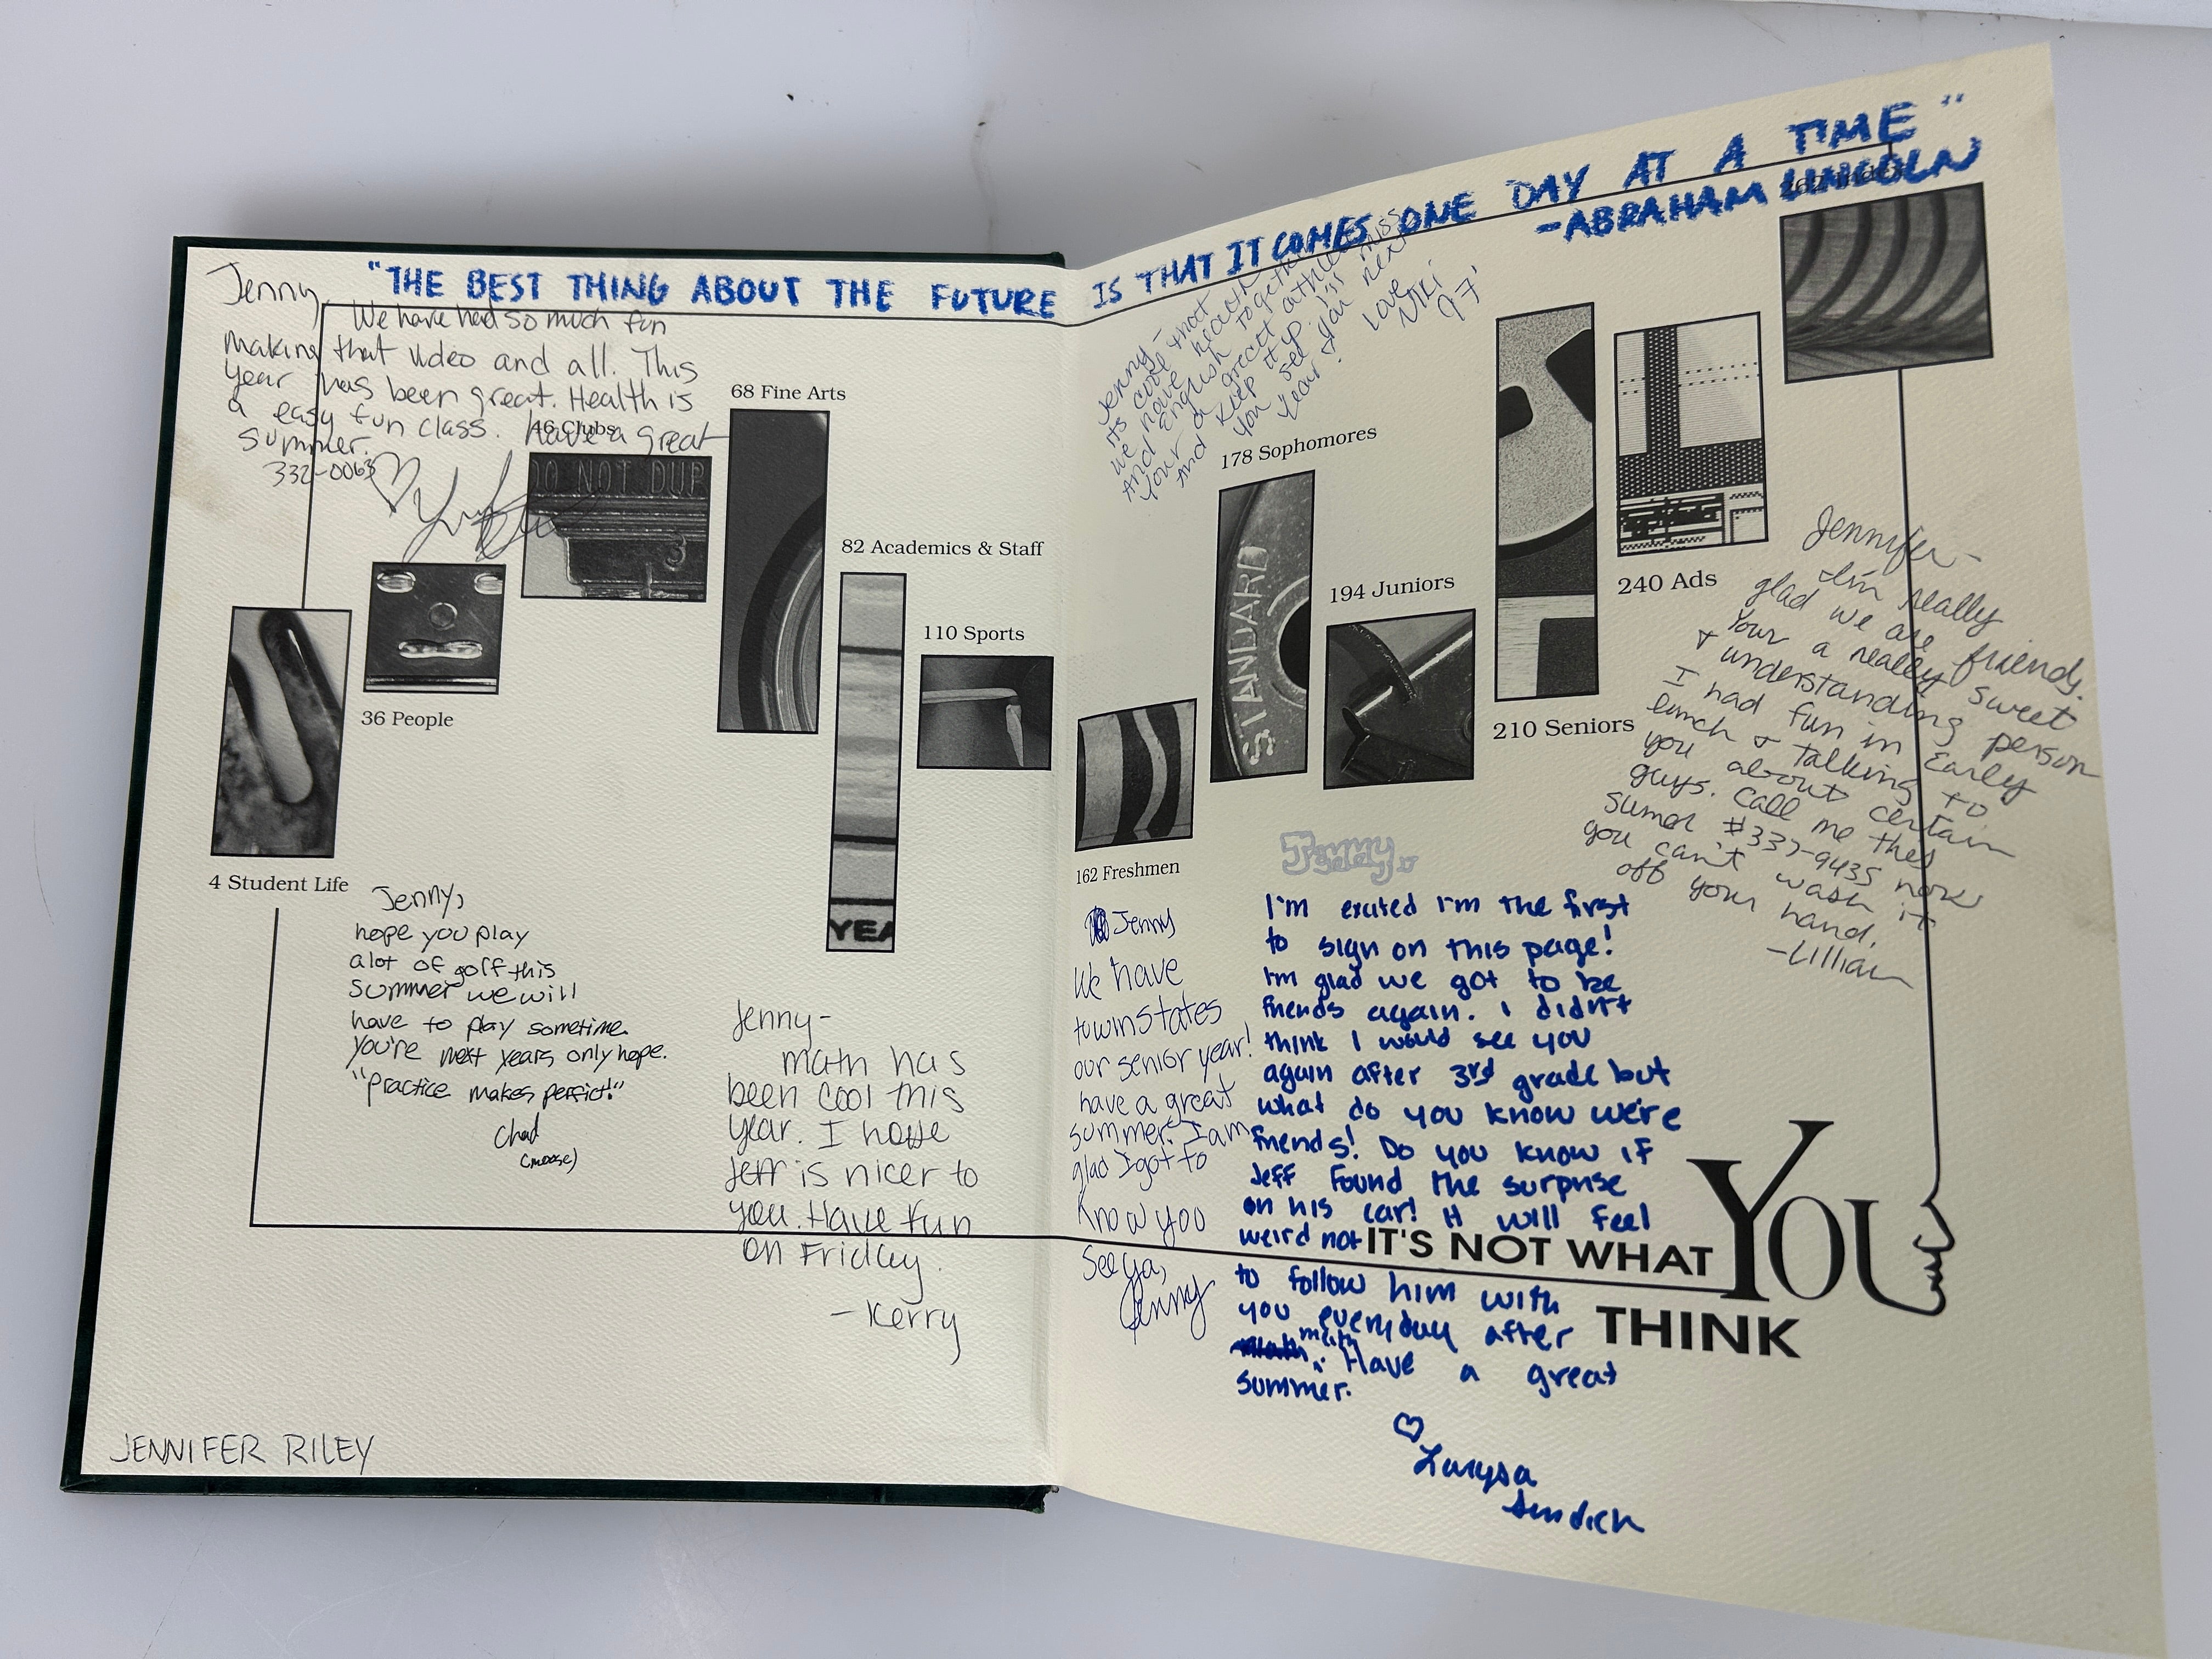 "THE BEST THING ABOUT THE FUTURE IS THAT IT COMES ONE DAY AT A TIME"
-ABRAHAM LINCOLN
Jenny,
We have had so much fun
making that video and all. This
year has been great. Health is
a easy fun class. Have a great
summer.
332-0063
46 Clubs
DO NOT DUP
3
68 Fine Arts
36 People
82 Academics & Staff
110 Sports
YEA
4 Student Life
Jenny,
hope you play
alot of golf this
summer we will
have to play sometime.
You're next years only hope.
"Practice makes perfict!"
Chad
(moose)
Jenny-
math has
been cool this
year. I hope
Jeff is nicer to
you. Have fun
on Friday.
- Kerry
JENNIFER RILEY
Jenny-
its cool that
we have health
And English together
Your a great athlete
And Keep it up. I'll miss
you & see you next
year!
Love
Niki
97'
178 Sophomores
STANDARD
194 Juniors
162 Freshmen
210 Seniors
240 Ads
262 Index
Jennifer-
I'm really
glad we are friends.
Your a really sweet
& understanding person
I had fun in Early
lunch & talking to
you about certain
guys. Call me this
sumer #337-9435 now
you can't wash it
off your hand.
-Lillian
Jenny
We have
to win states
our senior year!
have a great
summer. I am
glad I got to
Know you
See ya,
Jenny
Jenny
I'm excited I'm the first
to sign on this page!
I'm glad we got to be
friends again. I didn't
think I would see you
again after 3rd grade but
what do you know we're
friends! Do you know if
Jeff found the surprise
on his car! It will feel
weird not
to follow him with
you everyday after
math. Have a great
summer.
♡
Larysa
IT'S NOT WHAT YOU
THINK